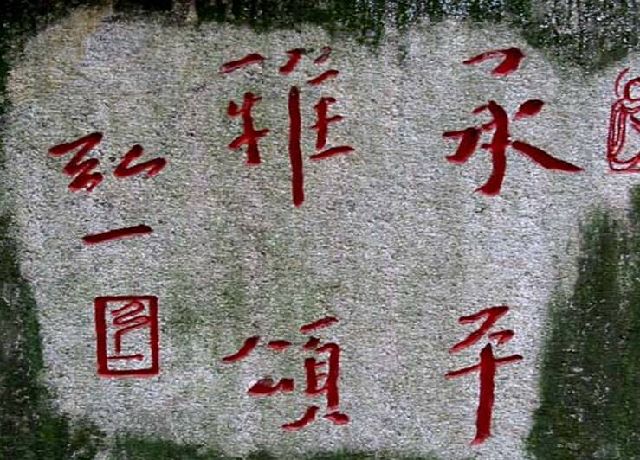 承平
雅頌
弘一